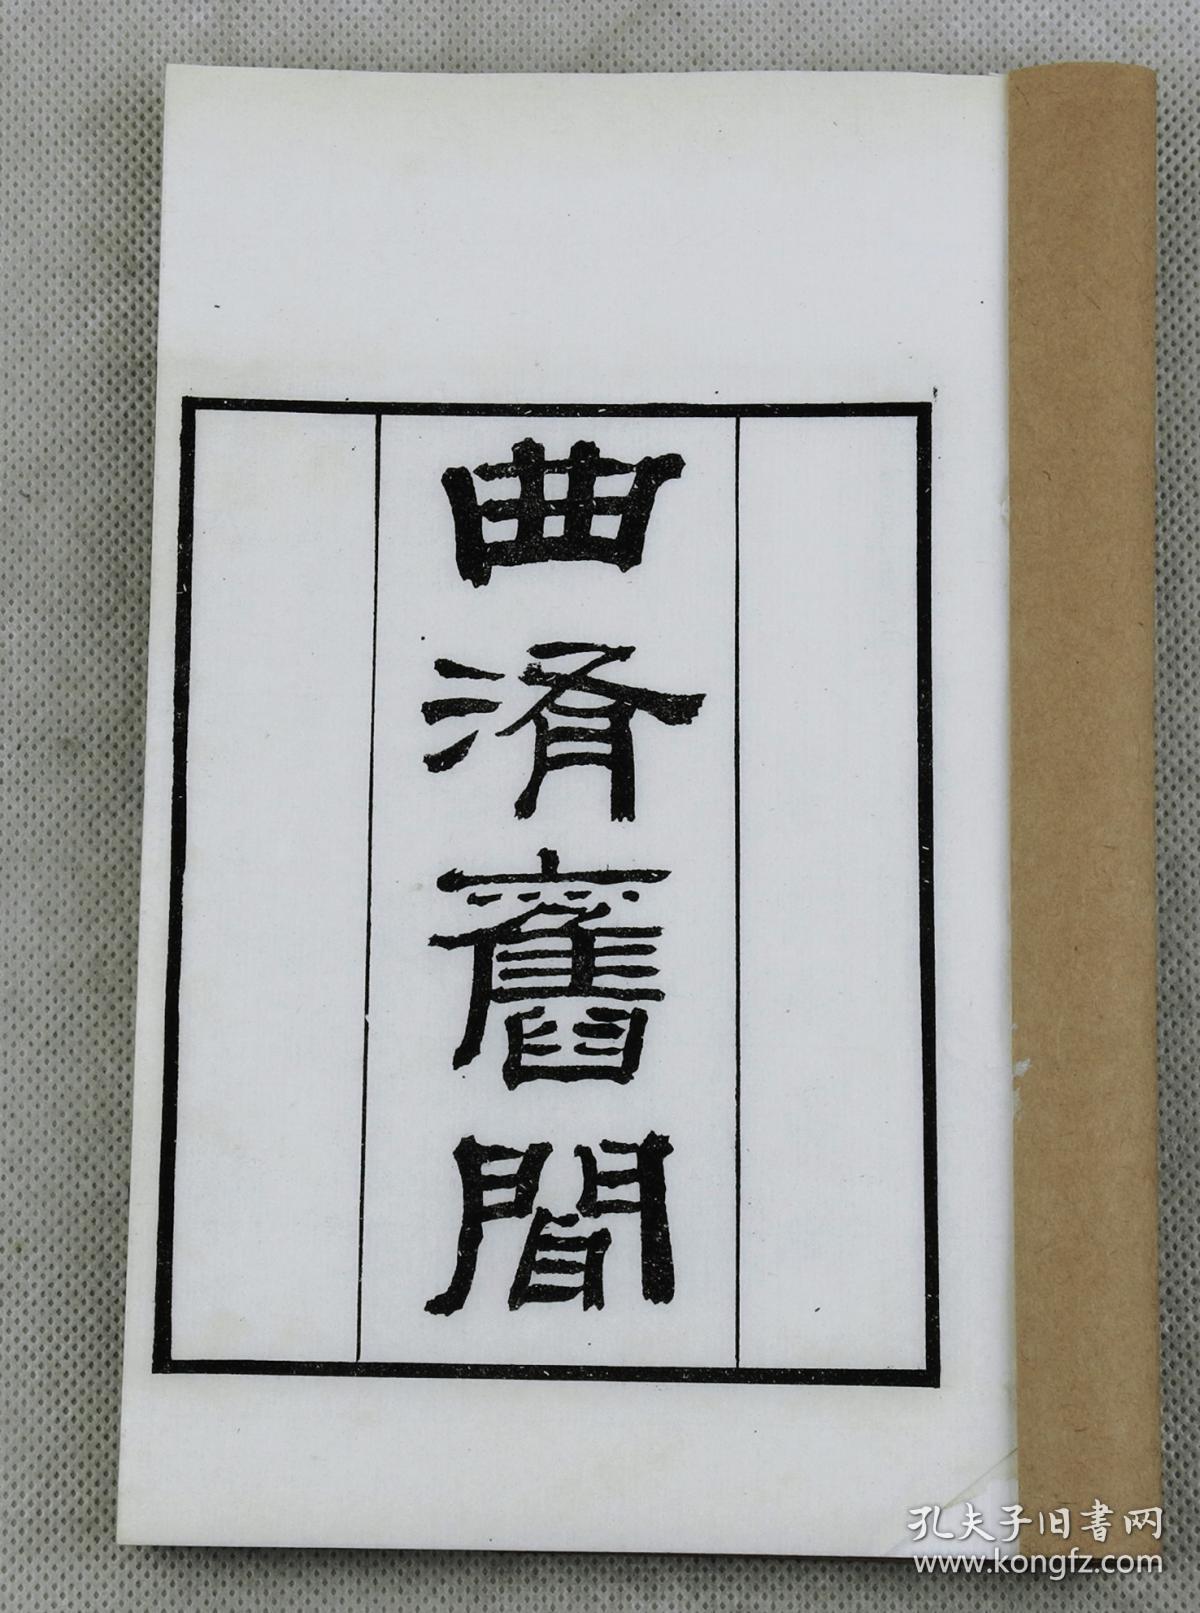 曲洧舊聞
孔夫子旧書网
www.kongfz.com